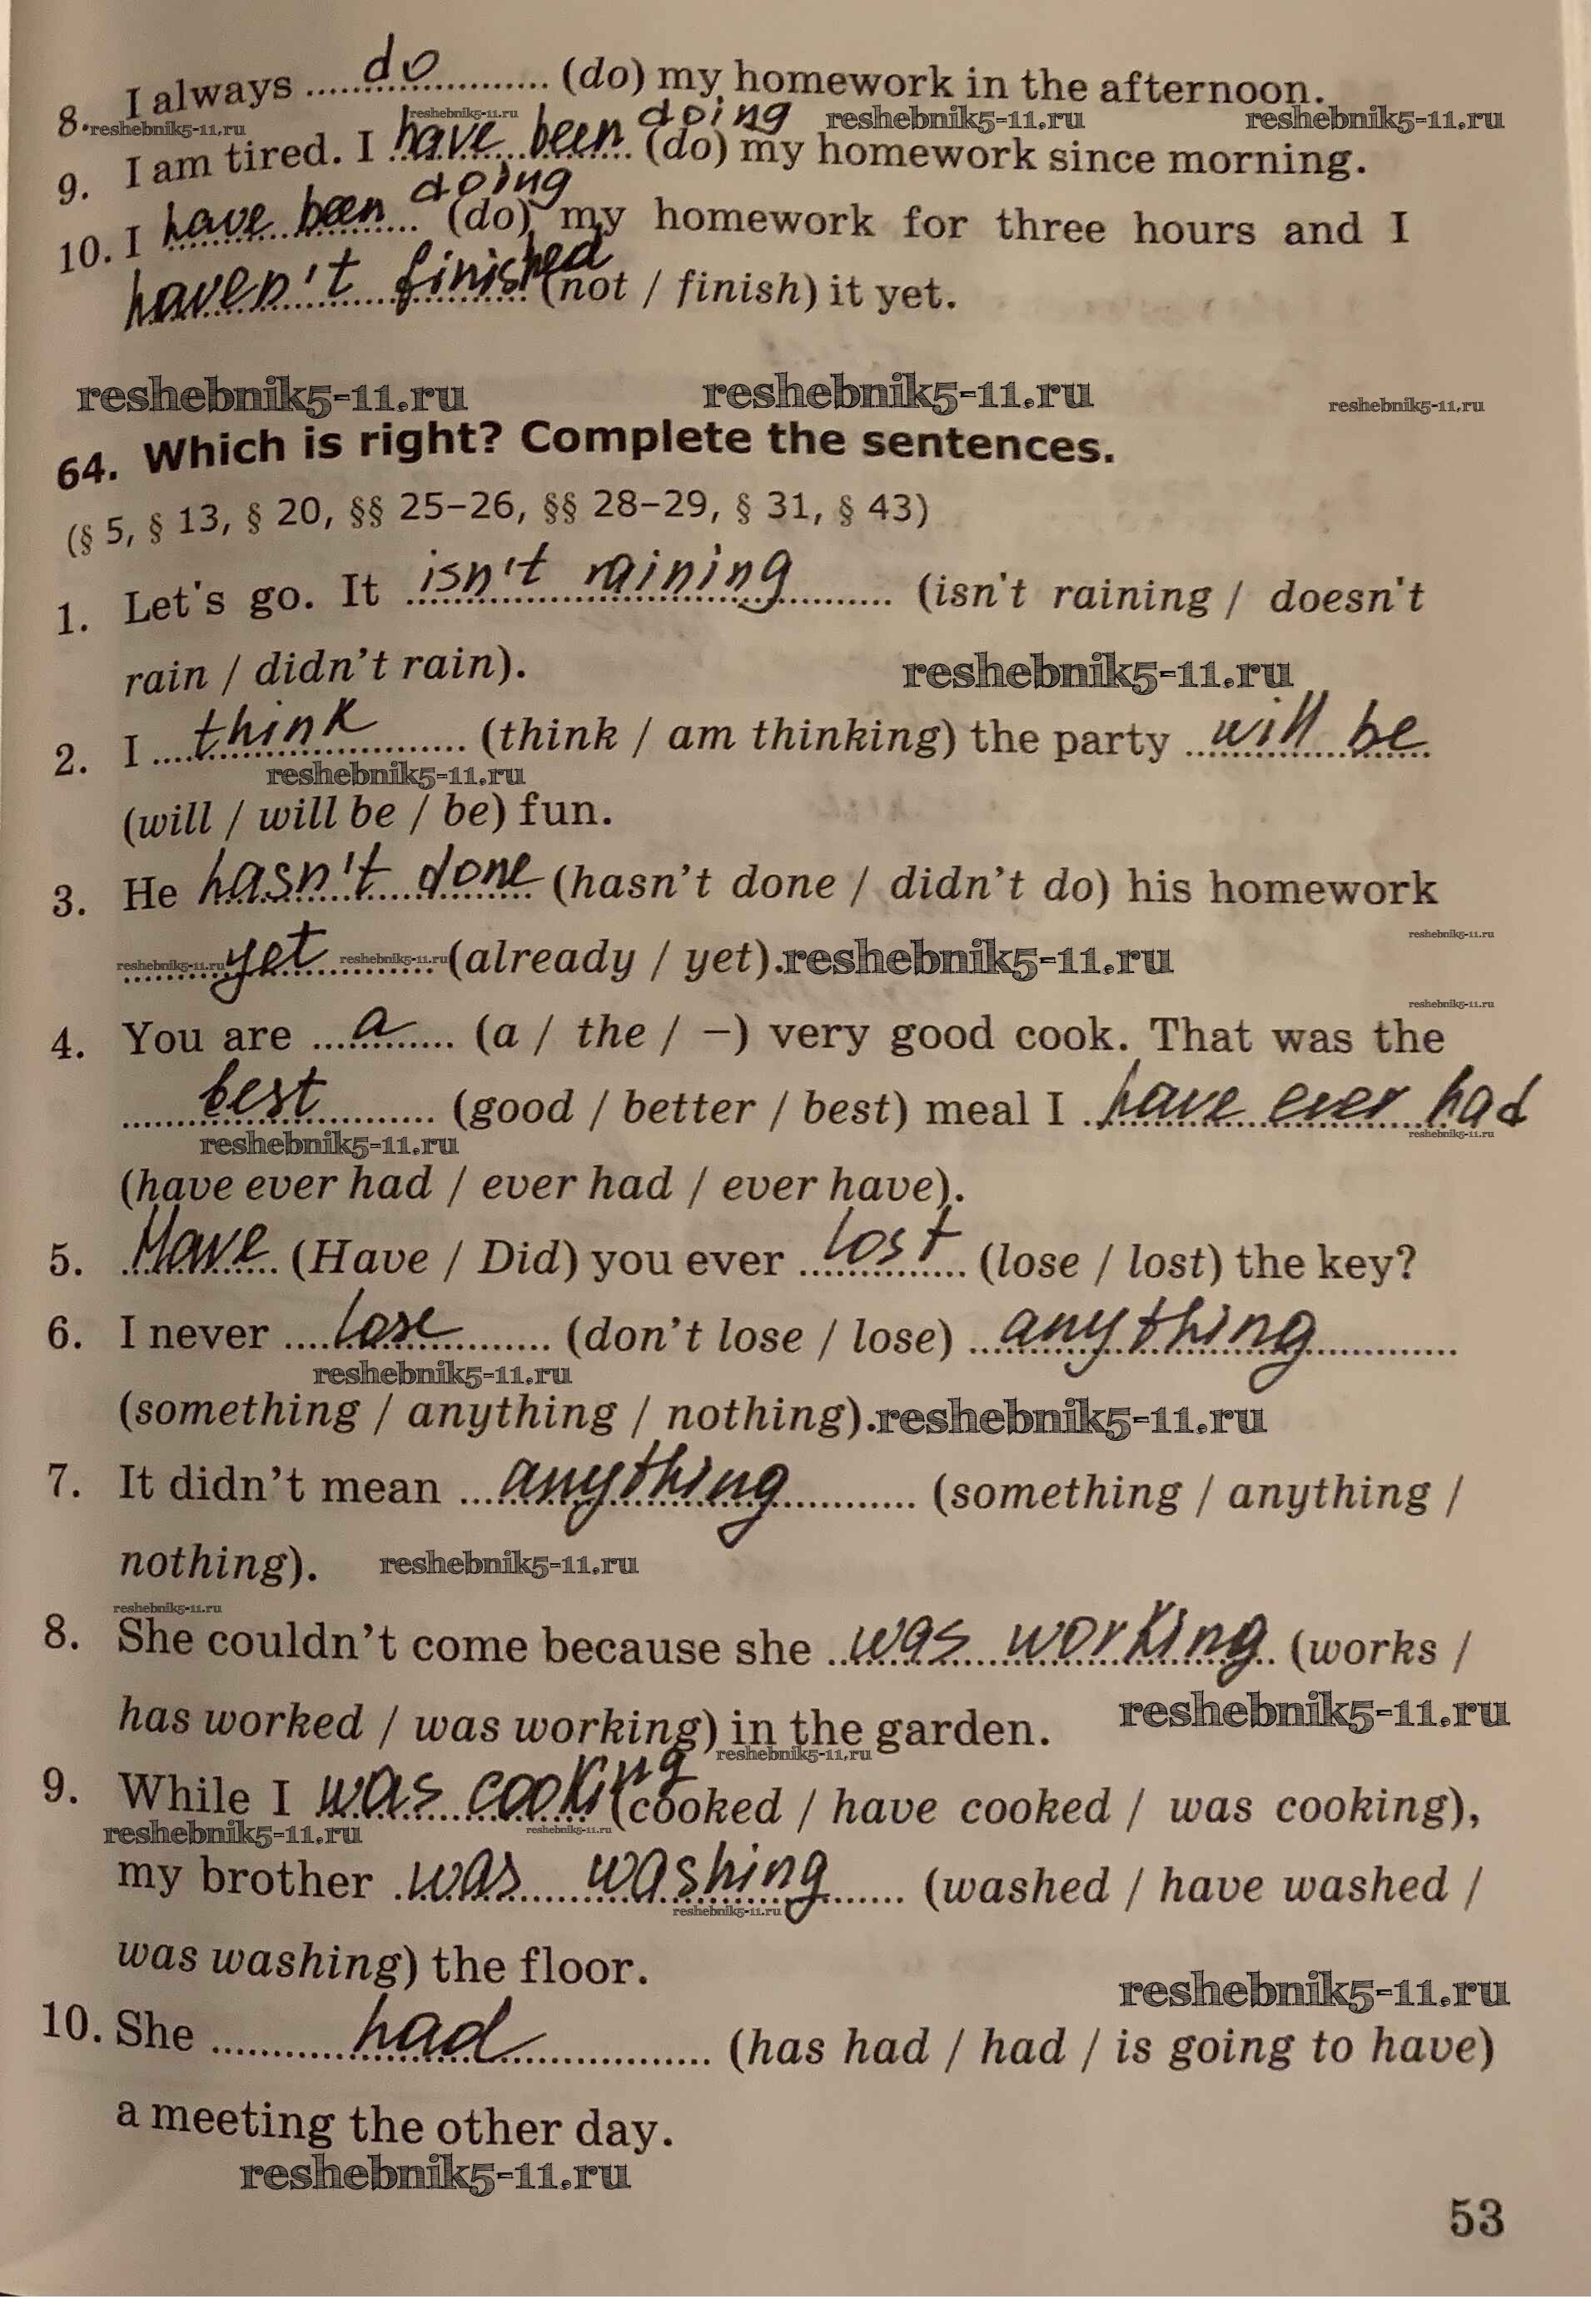 8. I always do (do) my homework in the afternoon.
reshebnik5-11.ru reshebnik5-11.ru reshebnik5-11.ru reshebnik5-11.ru
9. I am tired. I have been doing (do) my homework since morning.
10. I have been doing (do) my homework for three hours and I
haven't finished (not / finish) it yet.
reshebnik5-11.ru reshebnik5-11.ru reshebnik5-11.ru
64. Which is right? Complete the sentences.
(§ 5, § 13, § 20, §§ 25–26, §§ 28–29, § 31, § 43)
1. Let's go. It isn't raining (isn't raining / doesn't
rain / didn't rain).
reshebnik5-11.ru
2. I think (think / am thinking) the party will be
reshebnik5-11.ru
(will / will be / be) fun.
3. He hasn't done (hasn't done / didn't do) his homework
reshebnik5-11.ru
reshebnik5-11.ru yet reshebnik5-11.ru (already / yet). reshebnik5-11.ru
reshebnik5-11.ru
4. You are a (a / the / –) very good cook. That was the
best (good / better / best) meal I have ever had
reshebnik5-11.ru reshebnik5-11.ru
(have ever had / ever had / ever have).
5. Have (Have / Did) you ever lost (lose / lost) the key?
6. I never lose (don't lose / lose) anything
reshebnik5-11.ru
(something / anything / nothing). reshebnik5-11.ru
7. It didn't mean anything (something / anything /
nothing). reshebnik5-11.ru
reshebnik5-11.ru
8. She couldn't come because she was working (works /
has worked / was working) in the garden. reshebnik5-11.ru
reshebnik5-11.ru
9. While I was cooking (cooked / have cooked / was cooking),
reshebnik5-11.ru reshebnik5-11.ru
my brother was washing (washed / have washed /
reshebnik5-11.ru
was washing) the floor.
reshebnik5-11.ru
10. She had (has had / had / is going to have)
a meeting the other day.
reshebnik5-11.ru
53